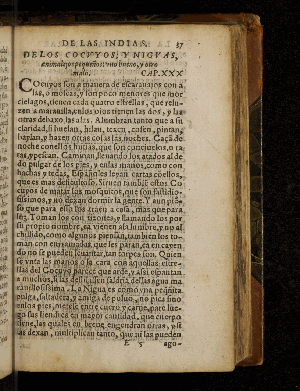 DE LAS INDIAS. 37
DE LOS COCVYOS, Y NIGVAS,
animalejos pequeños: vno bueno, y otro
malo. CAP. XXX
COcuyos son a manera de escarauajos con a
las, o moscas, y son poco menores que mor
cielagos, tienen cada quatro estrellas, que relu-
zen a marauilla, en los ojos tienen las dos, y las
otras debaxo las alas. Alumbran tanto que a su
claridad, si buelan, hilan, texen, cosen, pintan,
baylan, y hazen otras cosas las noches. Caçã de
noche con ellos hutias, que son conejuelos, o ra
tas, y pescan. Caminan lleuando los atados al de
do pulgar de los pies, y en las manos, como con
hachas y tedas. Españoles leyan cartas con ellos,
que es mas dificultoso. Siruen tambiẽ estos Co
cuyos de matar los mosquitos, que son
y no dexan dormir la gente. Y aun piẽ
so que para esso los traen a casa, mas que para
luz. Toman los con tizones, y llamando los por
su propio nombre, ca vienen a la lumbre, y no al
chillido, como algunos piensan, tambien los to-
man con enramadas, que les paran, ca en cayen
do no se pueden leuantar, tan torpes son. Quien
se vnta las manos o la cara con aquellas estre-
llas del Cocuyo parece que arde, y assi espantan
a muchos, si las
La Nigua es como vna pequeñita
pulga, saltadera, y amiga de poluo, no pica sino
en los pies, metese entre cuero y carne, pare lue-
go sus liendres en mayor cantidad, que cuerpo
tiene, las quales en breue engendran otras, y si
las dexan, multiplican tanto, que ni las pueden
E 5 ago-